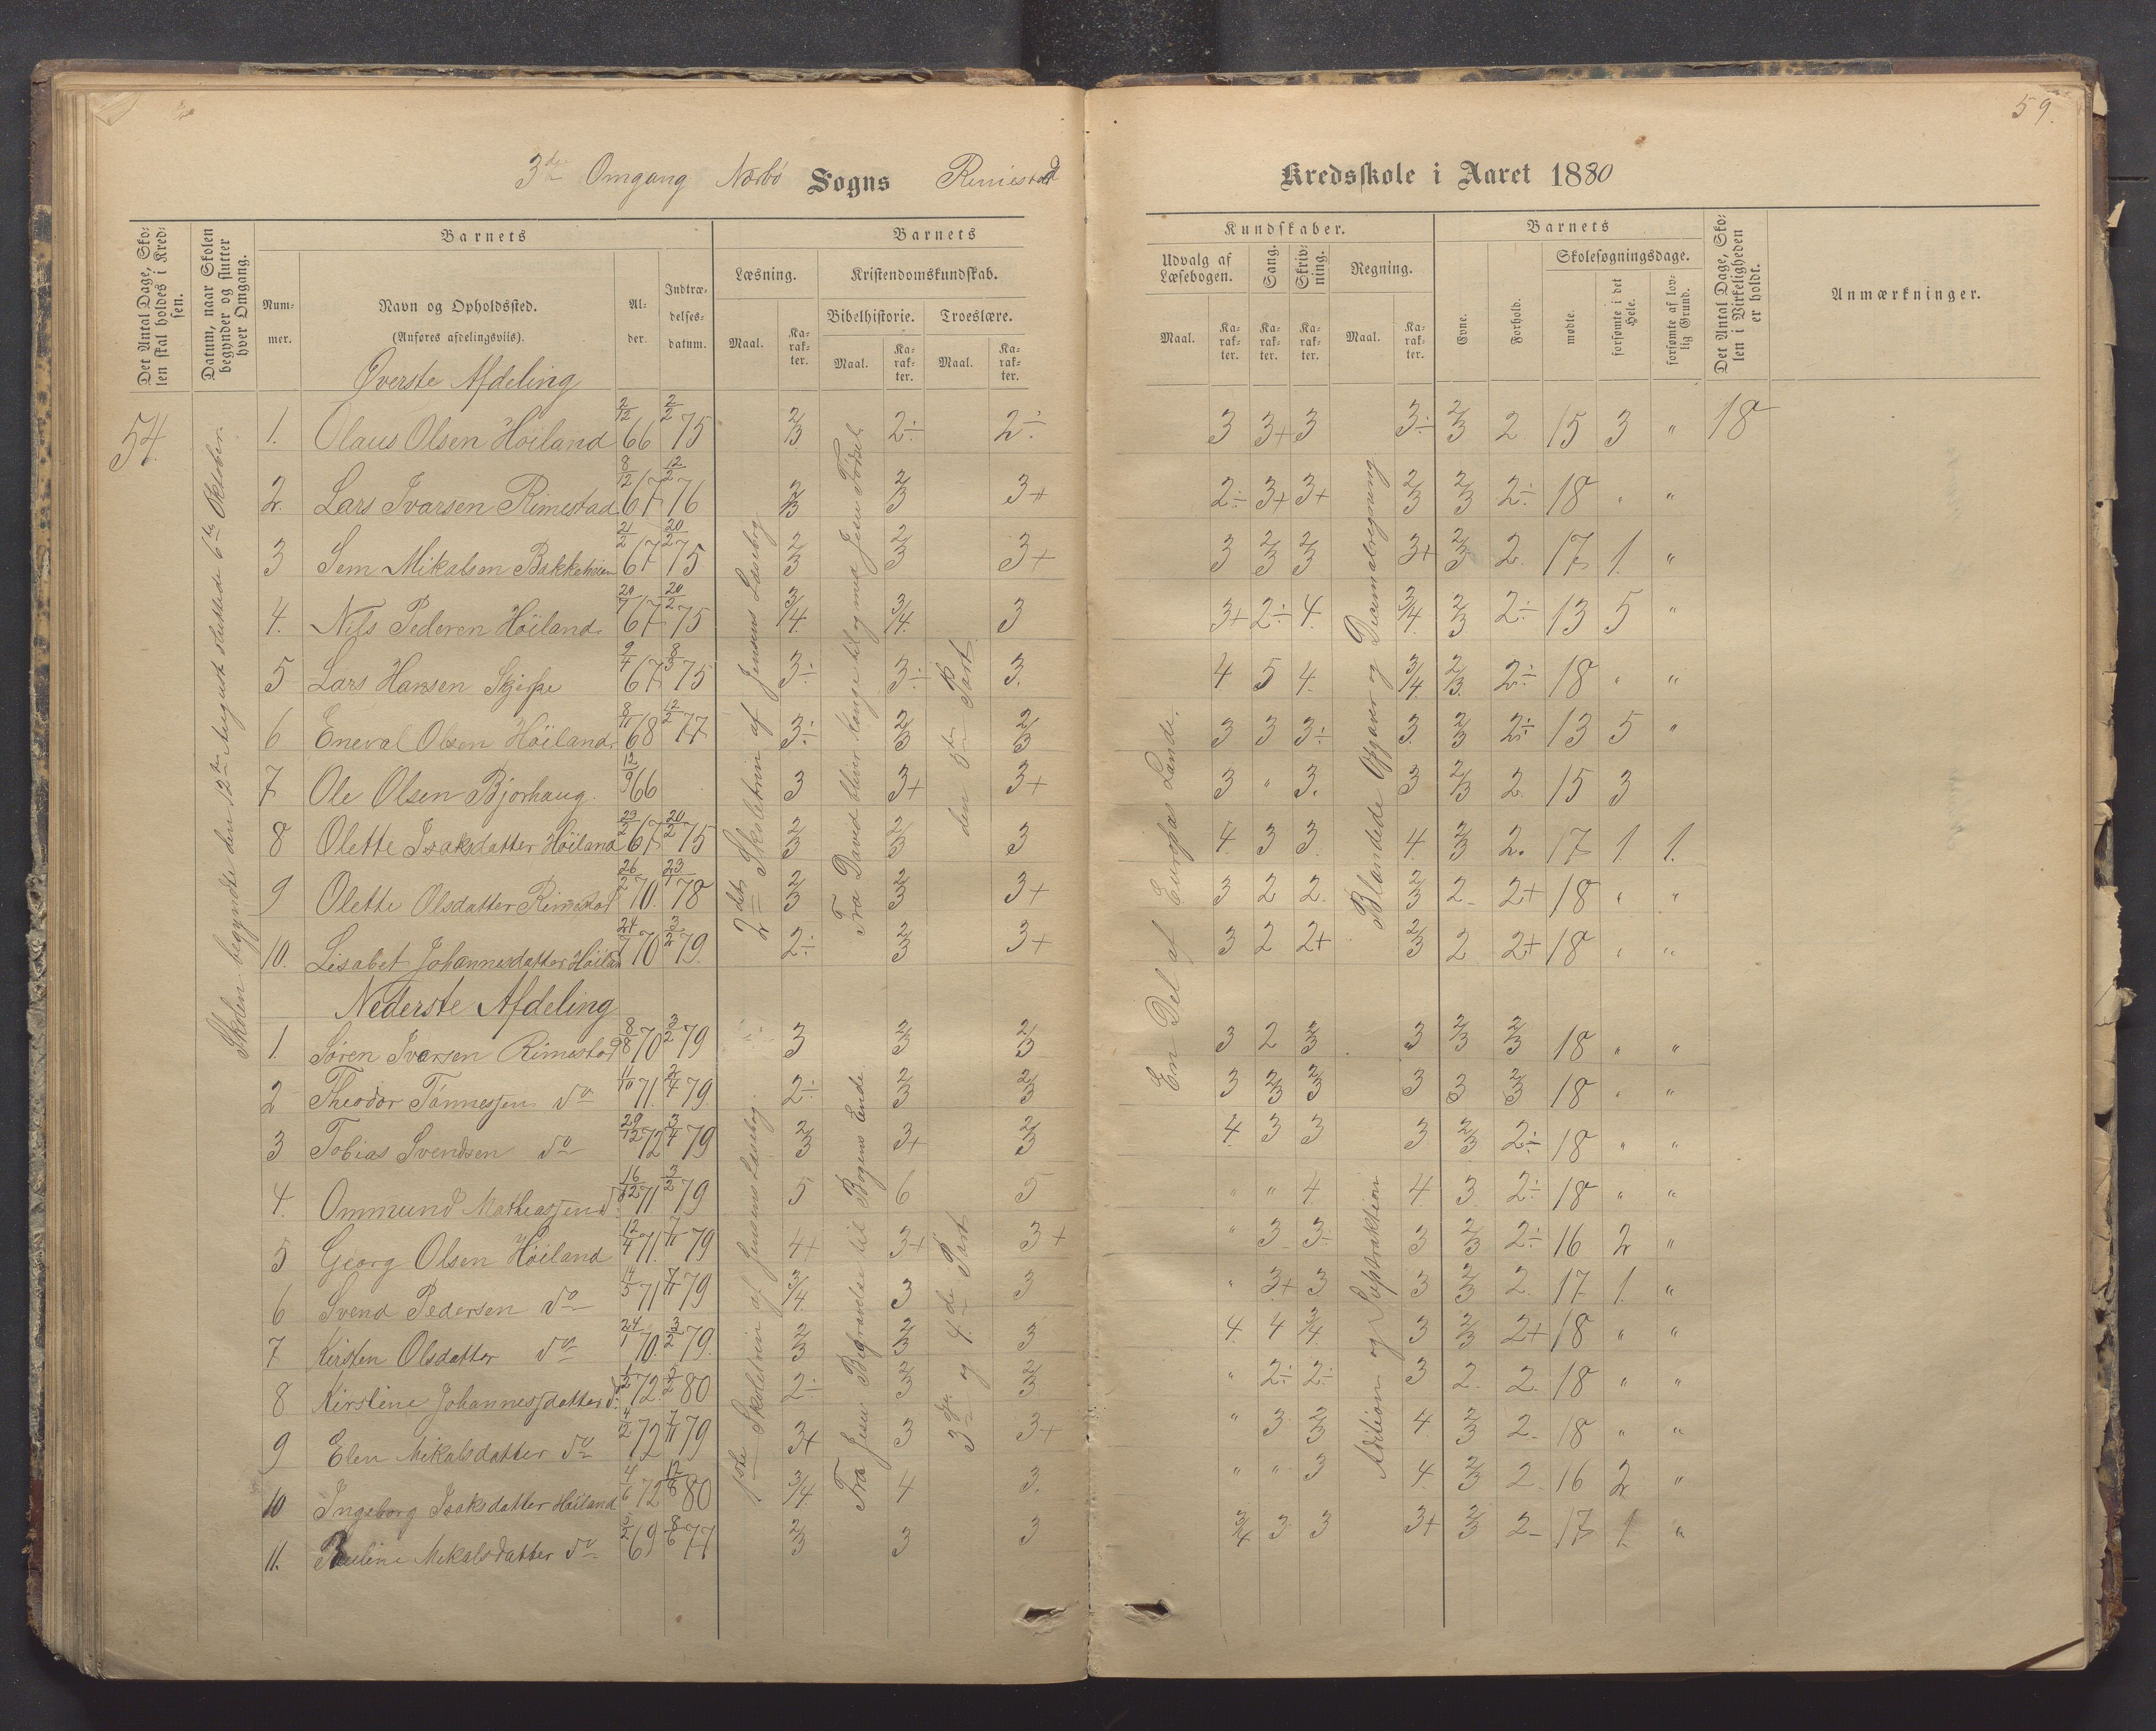 59.
3die Omgang Nærbø Sogns Rimestad Kredsskole i Aaret 1880
Det Antal Dage, Skolen skal holdes i Kredsen.
Datum, naar Skolen begynder og slutter hver Omgang.
Barnets
Nummer.
Navn og Opholdssted.
(Anføres afdelingsviis).
Alder.
Indtrædelsesdatum.
Barnets
Læsning.
Maal.
Karakter.
Kristendomskundskab.
Bibelhistorie.
Maal.
Karakter.
Troeslære.
Maal.
Karakter.
Kundskaber.
Udvalg af Læsebogen.
Maal.
Karakter.
Sang.
Karakter.
Skrivning.
Karakter.
Regning.
Maal.
Karakter.
Barnets
Evne.
Forhold.
Skolesøgningsdage.
mødte.
forsømte i det Hele.
forsømte af lovlig Grund.
Det Antal Dage, Skolen i Virkeligheden er holdt.
Anmærkninger.
54.
Skolen begyndte den 12te August sluttede 6te Oktober.
Øverste Afdeling
1. Olaus Olsen Høiland 2/12 66 2/2 75 2/3 2÷ 2÷ 3 3+ 3 3÷ 2/3 2 15 3 " 18
2. Lars Ivarsen Rimestad 8/12 67 12/2 76 2/3 2/3 3+ 2÷ 3+ 3+ 2/3 2/3 2÷ 18 " "
3 Sem Mikalsen Bakkeheien 21/2 67 20/2 75 2/3 2/3 3+ 3 2/3 2/3 3+ 2/3 2. 17 1. "
4. Nils Pedersen Høiland 20/7 67 20/2 75 3/4. 3/4. 3 3+ 2÷ 4. 3/4. 2/3 2÷ 13 5 "
5 Lars Hansen Skjerpe 9/4 67 8/3 75 3÷ 3÷ 3. 4 5 4. 3/4. 2/3. 2÷ 18 " "
6 Eneval Olsen Høiland 8/11 68 12/2 77 3÷ 2/3 2/3 3 3 3÷ 3. 2/3 2÷ 13 5 "
7 Ole Olsen Bjorhaug. 12/9 66 3 3+ 3+ 3 " 3. 3 2/3 2. 15 3
8 Olette Isaksdatter Høiland 23/2 67 20/2 75 2/3 2/3 3 4. 3 3. 4. 2/3 2. 17 1. 1.
9 Olette Olsdatter Rimestad 26/2 70. 23/1 78 2/3 2/3 3+ 3 2 2. 2/3 2 2+ 18 " "
10. Lisabet Johannesdatter Høiland 24/7 70 3/2 79. 2÷ 2/3 3+ 3 2 2+ 2/3 2 2+ 18 " "
2det Skoletrin af Jensens Læsebog
Fra David bliver Konge til og med Jesu Fødsel
den 5te Part
En Del af Europas Lande.
Blandede Opgaver og Decimalregning
Nederste Afdeling
1. Søren Ivarsen Rimestad 8/8 70 3/2 79 3 2/3 2/3 3 2 2/3 3 2/3 2/3 18 " "
2 Theodor Tønnesen do 11/10 71. 2/4 79. 2÷ 2/3 2/3 3 2/3 2/3 3 3 2/3 18 " "
3 Tobias Svendsen do 29/12 72 3/4 79 2/3 3+ 2/3 4. 3 3 3 2/3 2÷ 18 " "
4. Ommund Mathiassen do 16/12 71 3/2 79 5 6 5 " " 4. 4. 3. 2÷ 18 " "
5 Georg Olsen Høiland 12/4 71. 7/11 79 4+ 3+ 3+ " 3 3÷ 3 2/3 2÷ 16 2 "
6 Svend Pedersen do 14/5 71 7/11 79 3/4. 3 3 " 3+ 3 3 2/3 2. 17 1. "
7 Kirsten Olsdatter do 24/1 70. 3/2 79. 2/3 2/3 3 4. 4 3/4 3 2/3 2+ 18 " "
8 Kirstine Johannesdatter do 72 80 2÷ 2/3 2/3 " 2÷ 2÷ 3 2. 2. 18 " "
9 Elen Mikalsdatter do 4/2 72 7/11 79 3+ 3 3+ " 3 2/3 4. 2/3 2. 18 " "
10 Ingeborg Isaksdatter Høiland 4/6 72 80 3/4. 4 3. " " 3 4. 2/3 2. 16 2 "
11. Pauline Mikalsdatter do 69 8/6 77 2/3 3 3 3/4 3 3 3+ 2/3 2 17 1. "
1ste Skoletrin af Jensens Læsebog.
Fra Jesu Begravelse til Bogens Ende.
3die og 4de Part
Adition og Suptraktion